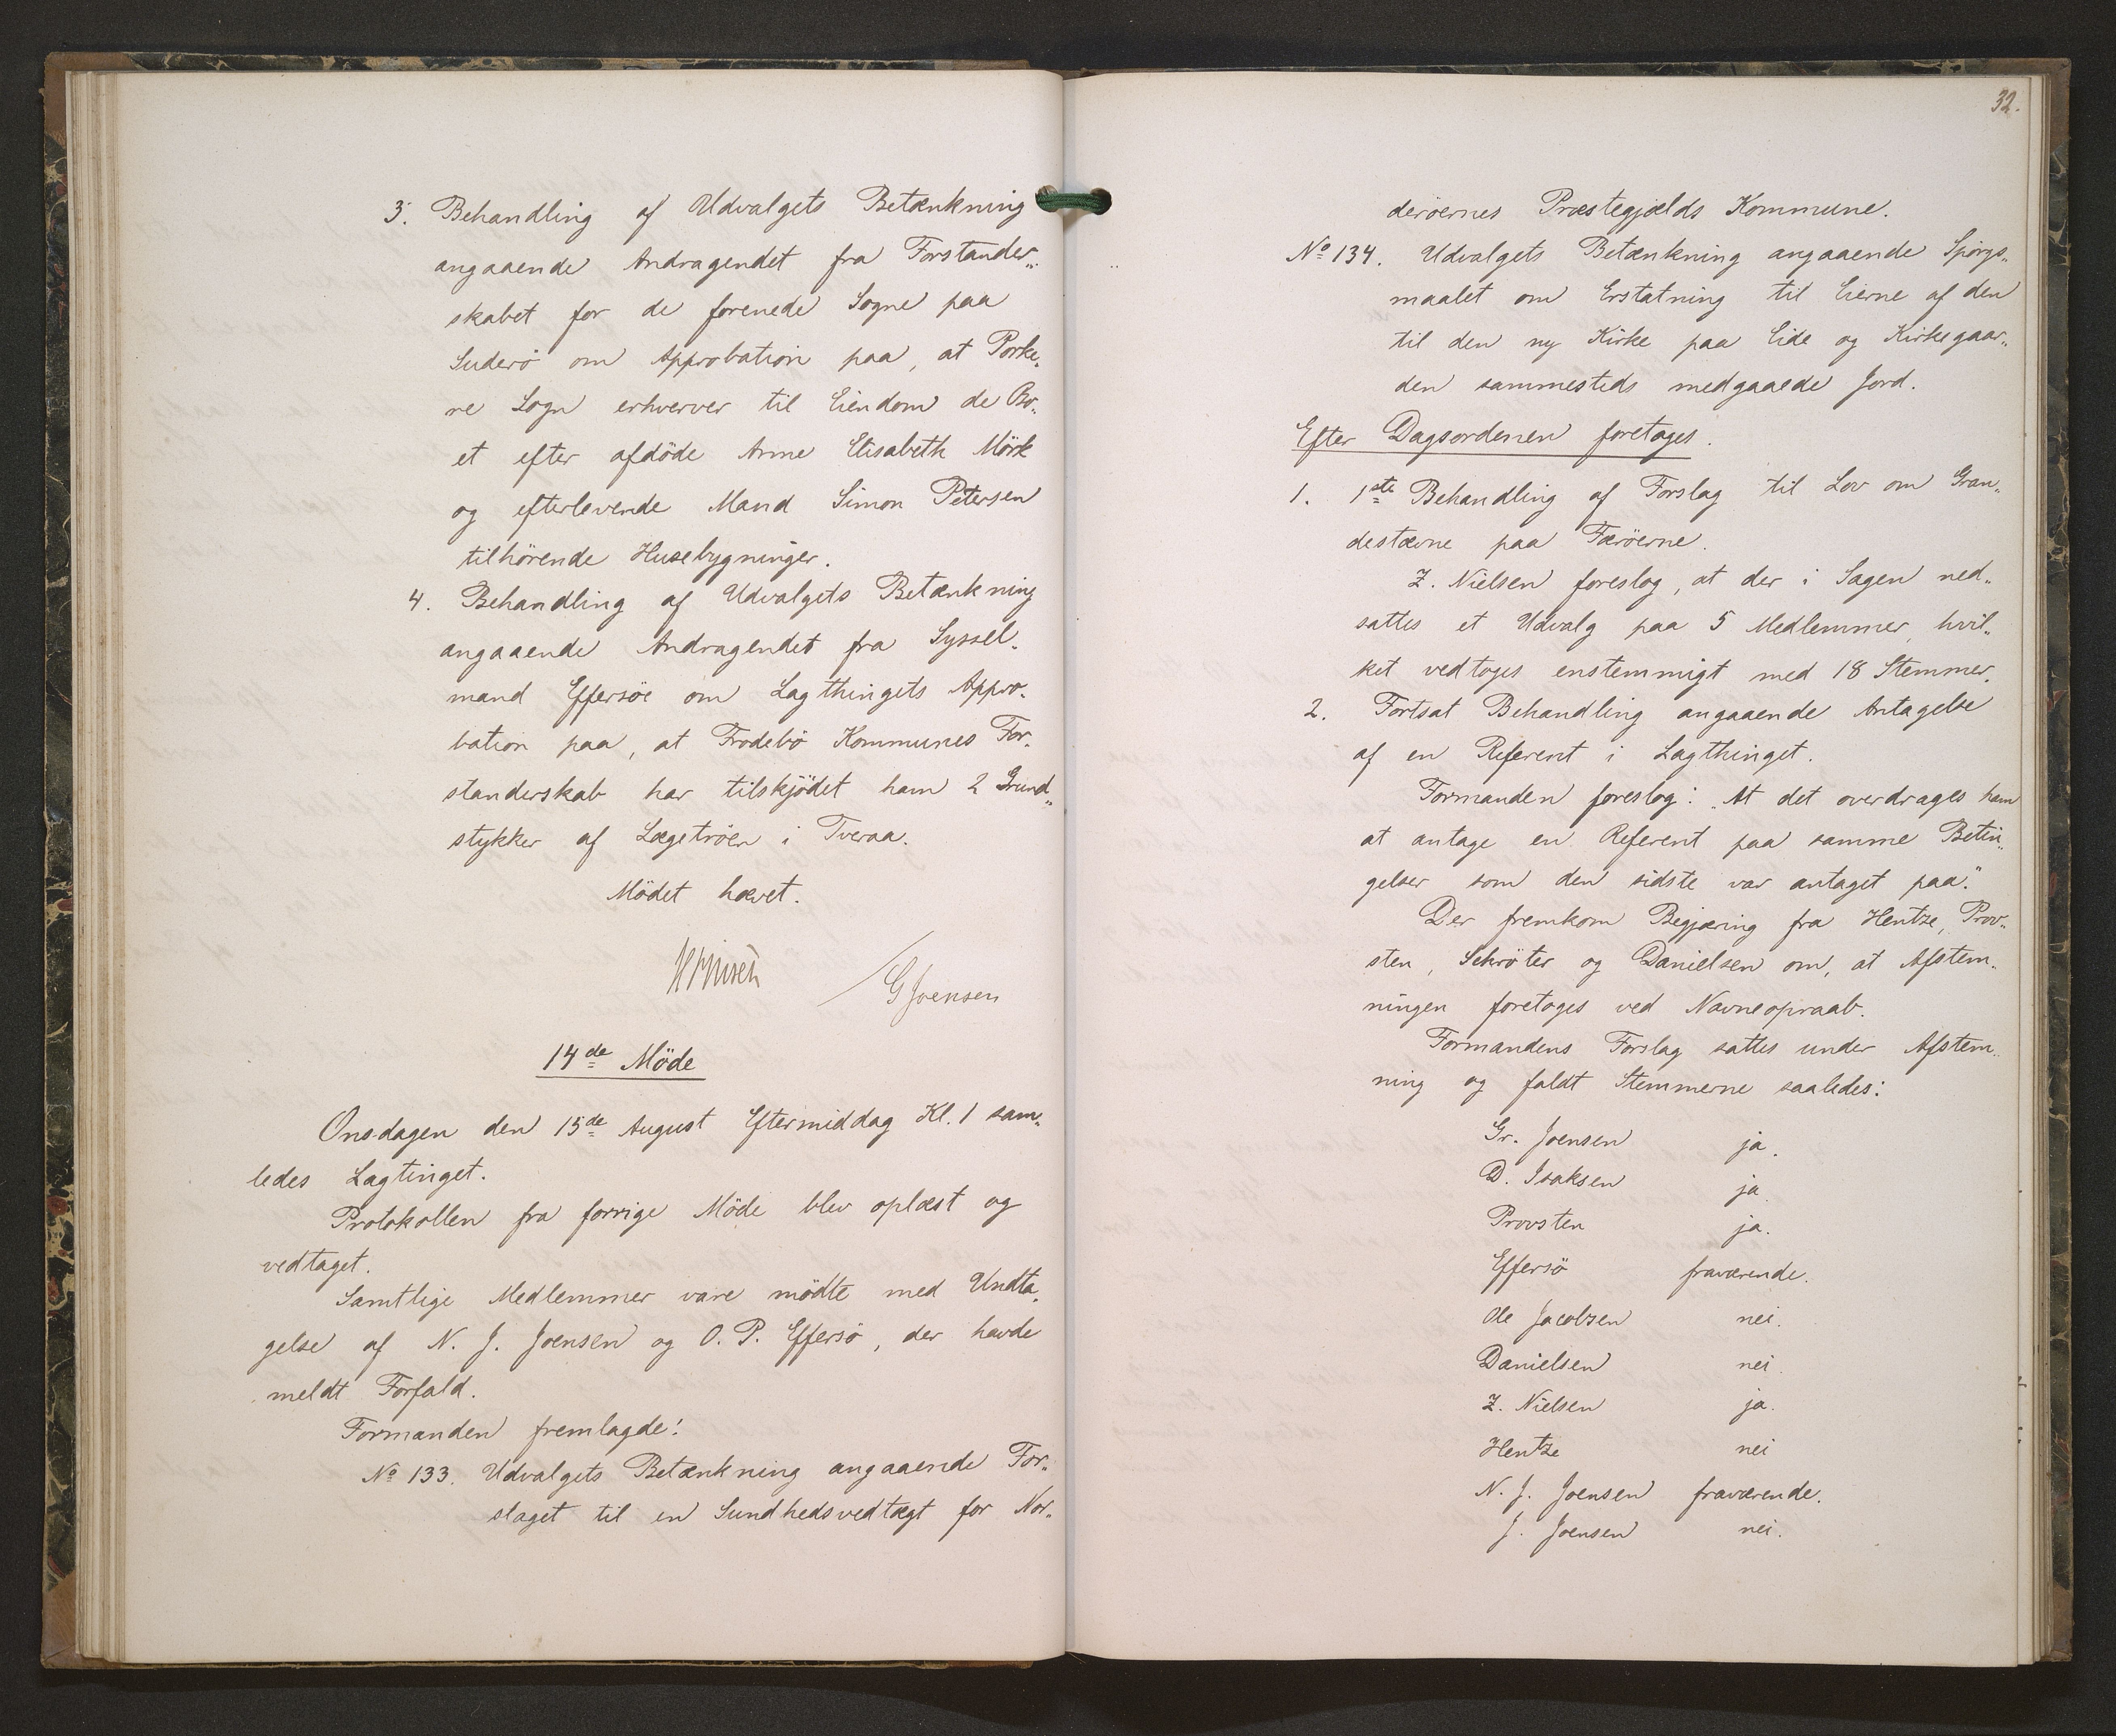 3. Behandling af Udvalgets Betænkning
angaaende Andragendet fra Forstander„
skabet for de forenede Sogne paa
Suderö om Approbation paa, at Porke„
re Sogn erhverver til Eiendom de Bo„
et efter afdöde Anne Elisabeth Mörk
og efterlevende Mand Simon Petersen
tilhörende Husebygninger.
4. Behandling af Udvalgets Betænkning
angaaende Andragendet fra Syssel„
mand Effersöe om Lagthingets Appro„
bation paa, at Frodebö Kommunes For„
standerskab har tilskjödet ham 2 Grund„
stykker af Lægetröen i Tveraa.
Mödet hævet.
GJoensen
14de Möde
Onsdagen den 15de August Eftermiddag Kl. 1 sam„
ledes Lagtinget.
Protokollen fra forrige Möde blev oplæst og
vedtaget.
Samtlige Medlemmer vare mödte med Undta„
gelse af N. J. Joensen og O. P. Effersö, der havde
meldt Forfald.
Formanden fremlagde:
No 133. Udvalgets Betænkning angaaende For„
slaget til en Sundhedsvedtægt for Nor„
32.
deröernes Præstegjælds Kommune.
No 134. Udvalgets Betænkning angaaende Spörgs„
maalet om Erstatning til Eierne af den
til den ny Kirke paa Eide og Kirkegaar„
den sammesteds medgaaede Jord.
Efter Dagsordenen foretoges.
1. 1ste Behandling af Forslag til Lov om Gran„
destævne paa Færöerne.
Z. Nielsen foreslog, at der i Sagen ned„
sattes et Udvalg paa 5 Medlemmer, hvil„
ket vedtoges enstemmigt med 18 Stemmer.
2. Fortsat Behandling angaaende Antagelse
af en Referent i Lagthinget.
Formanden foreslog: „At det overdrages ham
at antage en Referent paa samme Betin„
gelser som den sidste var antaget paa."
Der fremkom Begjæring fra Hentze, Prov„
sten, Schröter og Danielsen om, at Afstem„
ningen foretoges ved Navneopraab.
Formandens Forslag sattes under Afstem„
ning og faldt Stemmerne saaledes:
Gr. Joensen ja.
D. Isaksen ja
Provsten ja.
Effersö fraværende.
Ole Jacobsen nei.
Danielsen nei.
Z. Nielsen ja.
Hentze nei
N. J. Joensen fraværende.
J. Joensen nei.